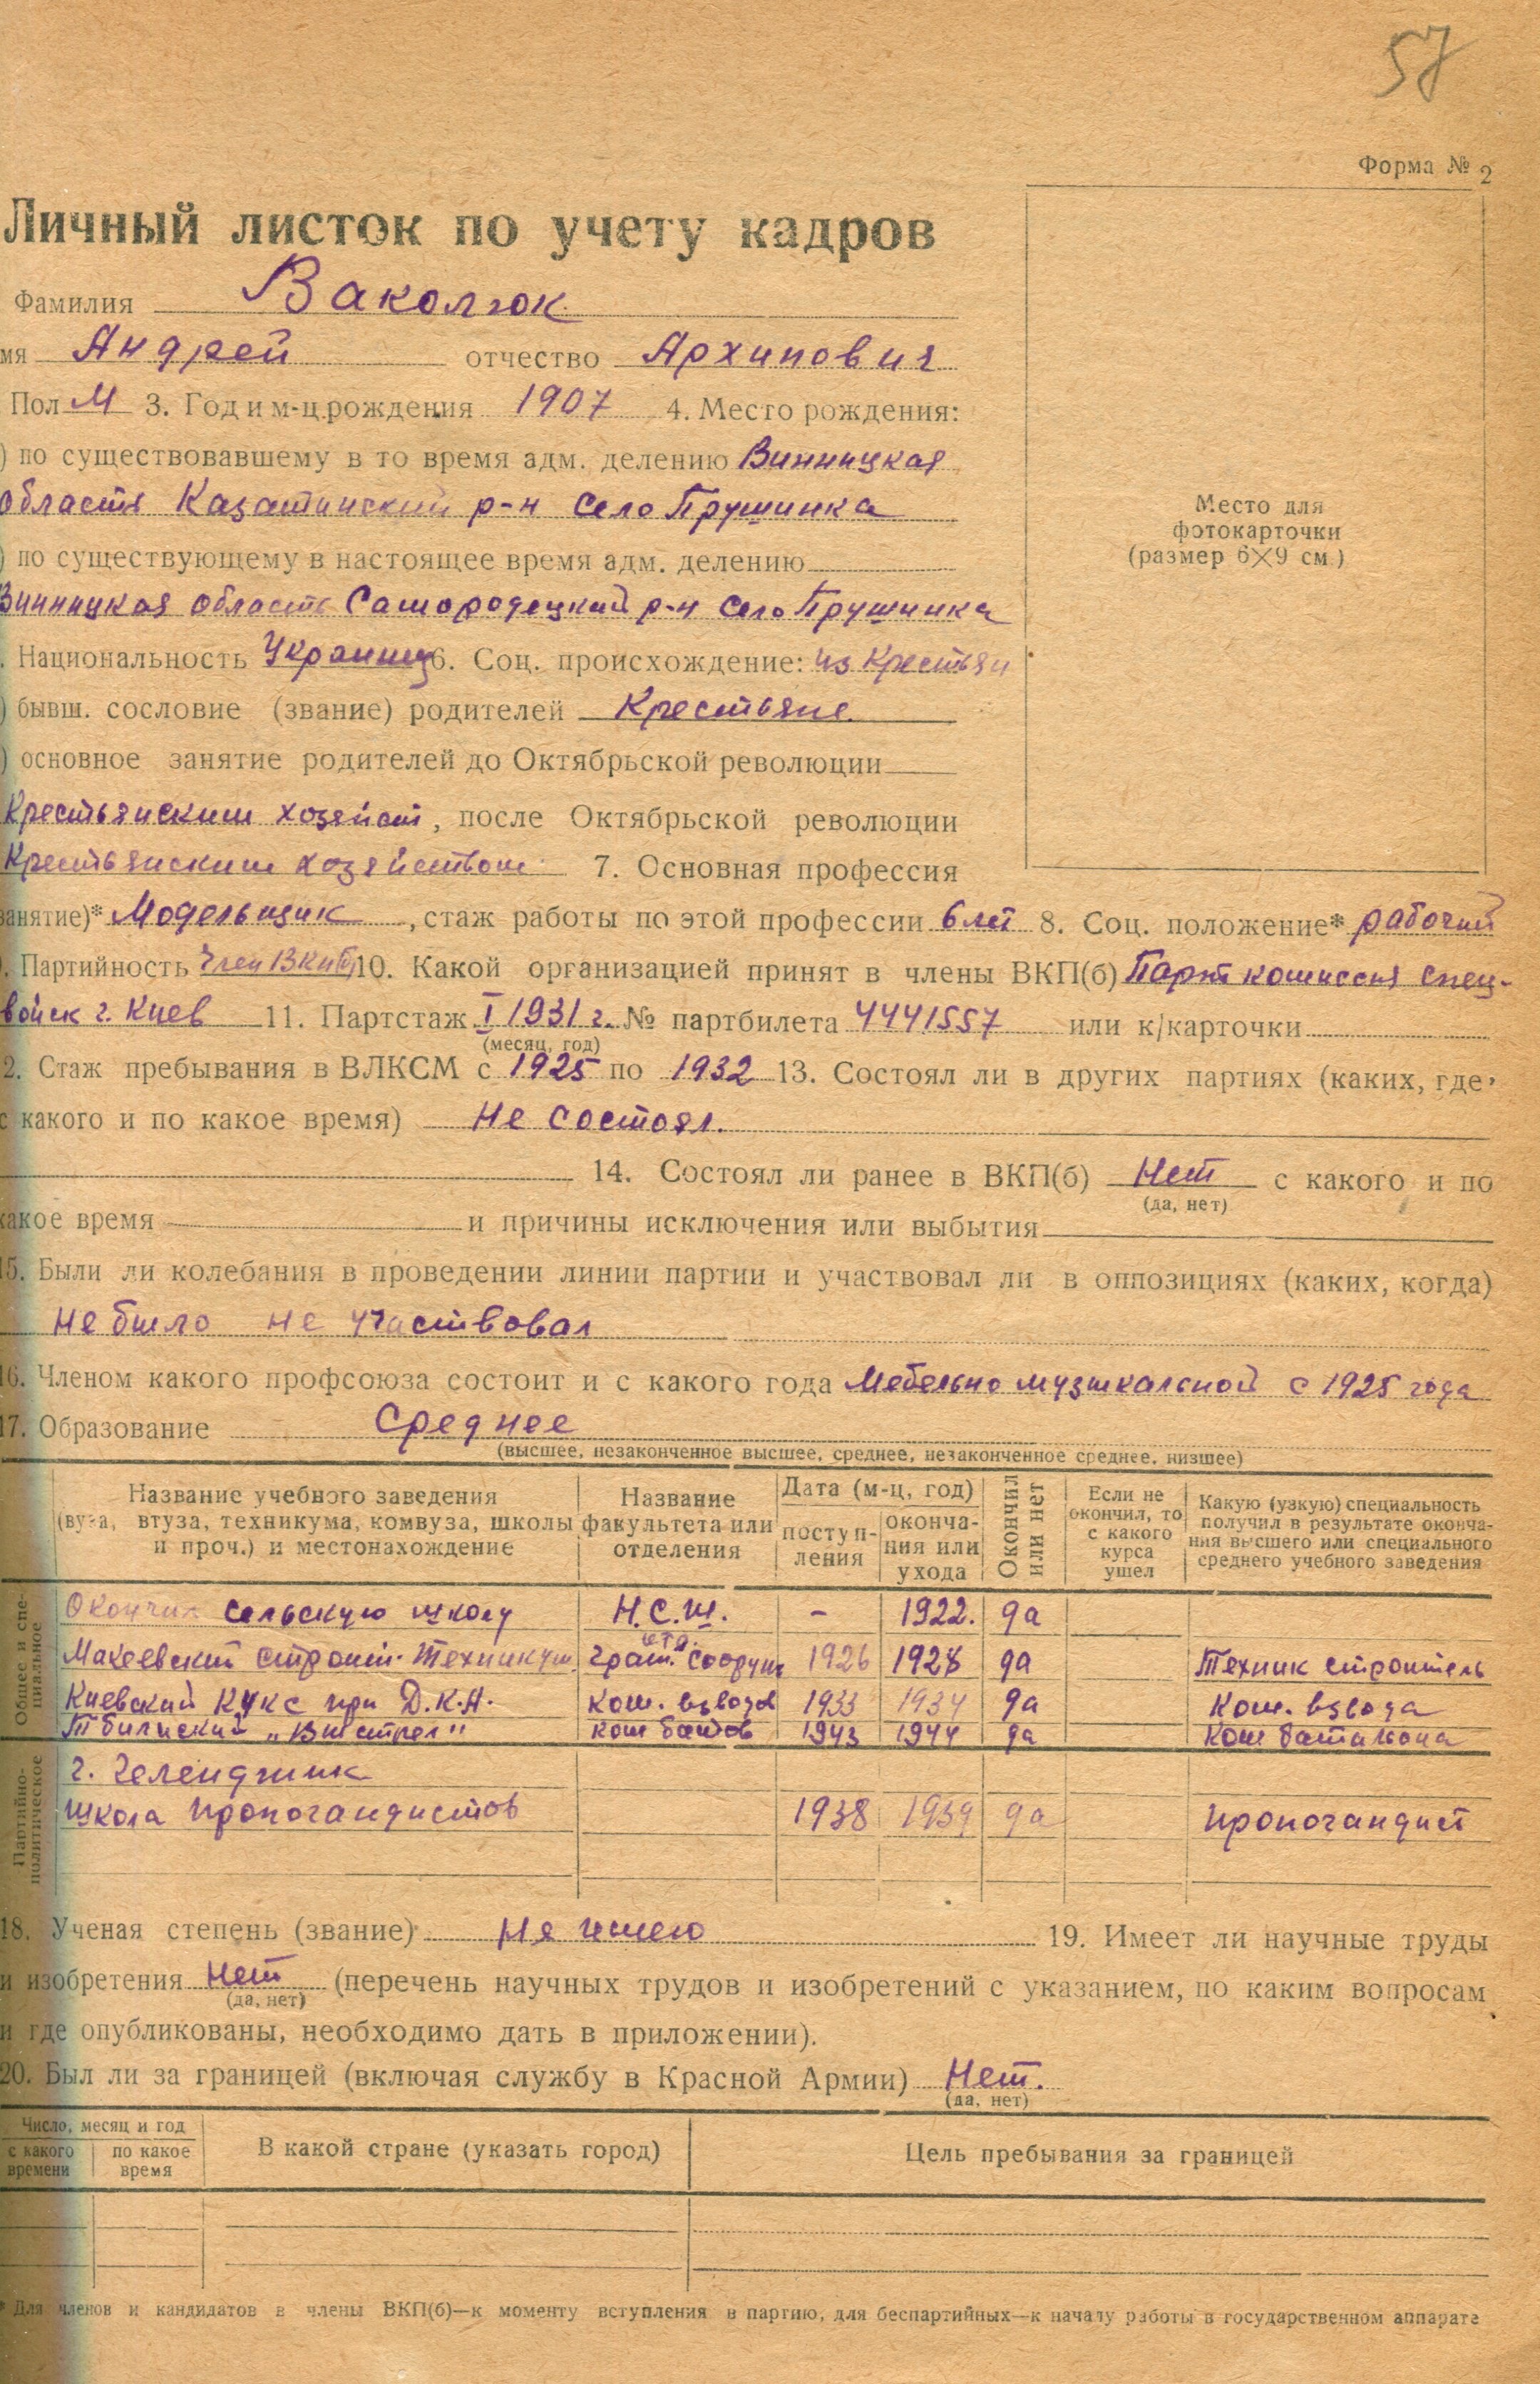 57
Форма № 2
Личный листок по учету кадров
Фамилия Ваколюк
мя Андрей отчество Архипович
Пол М 3. Год и м-ц рождения 1907 4. Место рождения:
) по существовавшему в то время адм. делению Винницкая
область Казатинский р-н село Прушинка
) по существующему в настоящее время адм. делению
Винницкая область Самородецкий р-н село Прушинка
. Национальность Украинец 6. Соц. происхождение: из Крестьян
) бывш. сословие (звание) родителей Крестьяне.
) основное занятие родителей до Октябрьской революции
Крестьянским хозяйст, после Октябрьской революции
Крестьянским хозяйством 7. Основная профессия
занятие)* Модельщик, стаж работы по этой профессии 6 лет 8. Соц. положение* рабочий
. Партийность Член ВКПб 10. Какой организацией принят в члены ВКП(б) Парт комиссия спец-
войск г. Киев 11. Партстаж I 1931 г. № партбилета 4441557 или к/карточки
(месяц, год)
2. Стаж пребывания в ВЛКСМ с 1925 по 1932 13. Состоял ли в других партиях (каких, где,
с какого и по какое время) Не состоял.
14. Состоял ли ранее в ВКП(б) Нет с какого и по
(да, нет)
какое время и причины исключения или выбытия
15. Были ли колебания в проведении линии партии и участвовал ли в оппозициях (каких, когда)
не было не участвовал
16. Членом какого профсоюза состоит и с какого года Мебельно музикальной с 1925 года
17. Образование Среднее
(высшее, незаконченное высшее, среднее, незаконченное среднее, низшее)
Название учебного заведения (вуза, втуза, техникума, комвуза, школы и проч.) и местонахождение
Название факультета или отделения
Дата (м-ц, год)
поступления
окончания или ухода
Окончил или нет
Если не окончил, то с какого курса ушел
Какую (узкую) специальность получил в результате окончания высшего или специального среднего учебного заведения
Общее и специальное
Окончил сельскую школу Н.С.Ш. - 1922. да
Макеевский строит. Техникум сооруж 1926 1928 да Техник строитель
Киевский КУКС при Д.К.А. ком. взводов 1933 1934 да Ком. взвода
Тбилиский „Выстрел" ком батов 1943 1944 да Ком батальона
Партийно-политическое
г. Геленджик
Школа пропогандистов 1938 1939 да пропогандист
18. Ученая степень (звание) Не имею 19. Имеет ли научные труды
и изобретения Нет (перечень научных трудов и изобретений с указанием, по каким вопросам
(да, нет)
и где опубликованы, необходимо дать в приложении).
20. Был ли за границей (включая службу в Красной Армии) Нет.
(да, нет)
Число, месяц и год
с какого времени
по какое время
В какой стране (указать город)
Цель пребывания за границей
* Для членов и кандидатов в члены ВКП(б)—к моменту вступления в партию, для беспартийных—к началу работы в государственном аппарате
Место для
фотокарточки
(размер 6×9 см.)